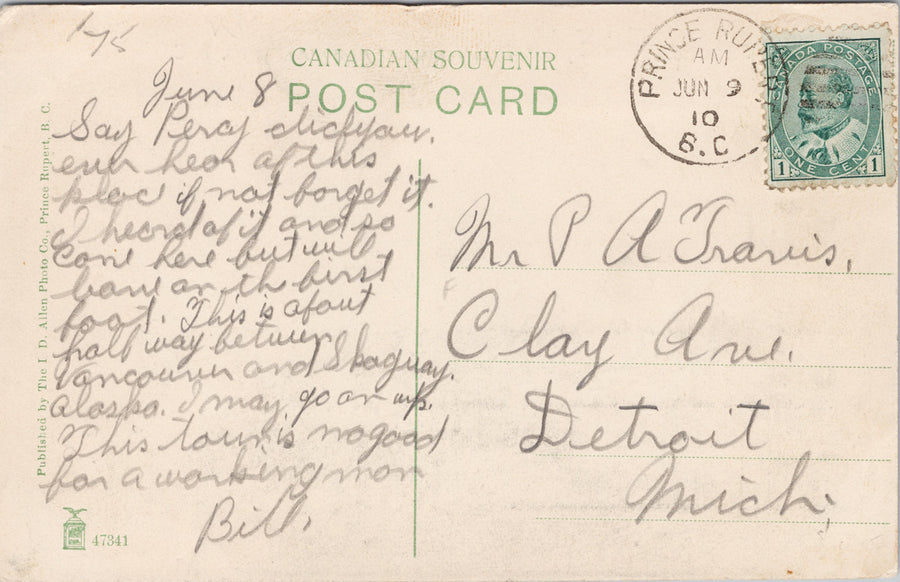 175
CANADIAN SOUVENIR
POST CARD
PRINCE RUPERT
AM
JUN 9
10
B.C
CANADA POSTAGE
1 ONE CENT 1
June 8
Say Percy did you
ever hear of this
place if not forget it.
I heard of it and so
come here but will
leave on th first
boat. This is about
half way between
Vancouver and Skaguay.
Alaska. I may go on up.
This town is no good
for a working man
Bill.
Mr P A Travis.
Clay Ave.
Detroit
Mich.
Published by The I. D. Allen Photo Co., Prince Rupert, B. C.
47341